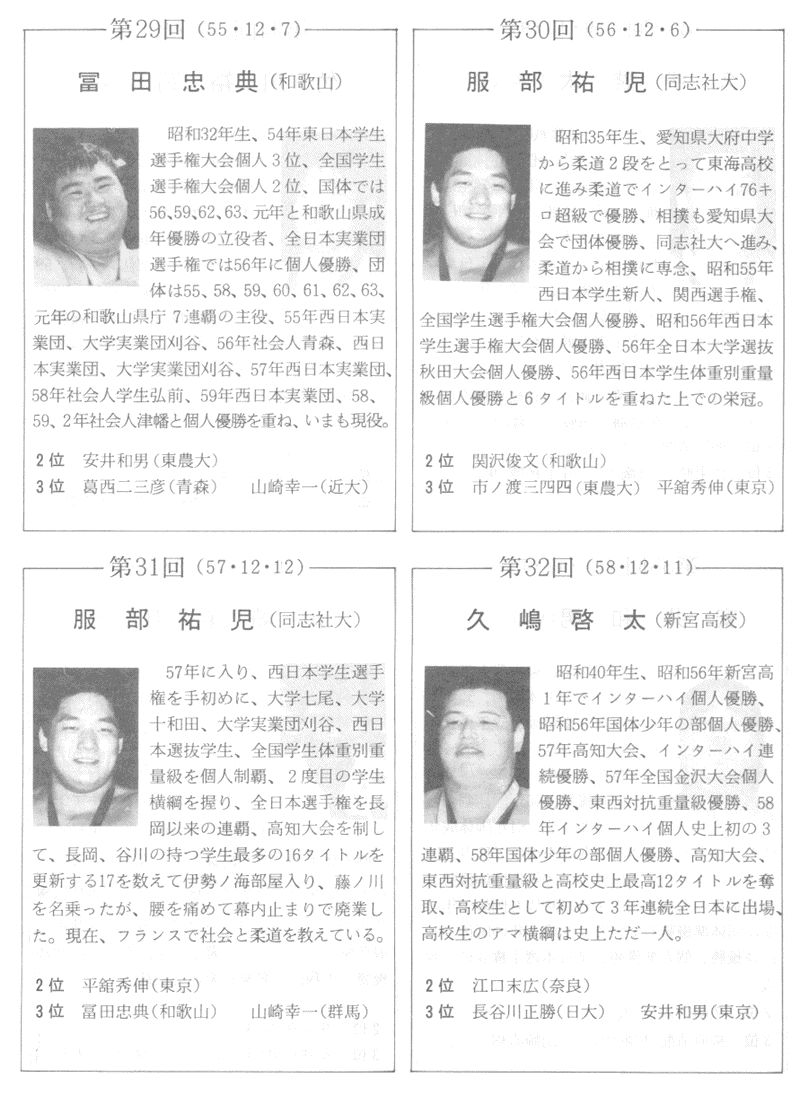 第29回（55・12・7）
冨田忠典（和歌山）
昭和32年生、54年東日本学生
選手権大会個人3位、全国学生
選手権大会個人2位、国体では
56、59、62、63、元年と和歌山県成
年優勝の立役者、全日本実業団
選手権では56年に個人優勝、団
体は55、58、59、60、61、62、63、
元年の和歌山県庁7連覇の主役、55年西日本実
業団、大学実業団刈谷、56年社会人青森、西日
本実業団、大学実業団刈谷、57年西日本実業団、
58年社会人学生弘前、59年西日本実業団、58、
59、2年社会人津幡と個人優勝を重ね、いまも現役。
2位 安井和男（東農大）
3位 葛西二三彦（青森） 山崎幸一（近大）
第30回（56・12・6）
服部祐児（同志社大）
昭和35年生、愛知県大府中学
から柔道2段をとって東海高校
に進み柔道でインターハイ76キ
ロ超級で優勝、相撲も愛知県大
会で団体優勝、同志社大へ進み、
柔道から相撲に専念、昭和55年
西日本学生新人、関西選手権、
全国学生選手権大会個人優勝、昭和56年西日本
学生選手権大会個人優勝、56年全日本大学選抜
秋田大会個人優勝、56年西日本学生体重別重量
級個人優勝と6タイトルを重ねた上での栄冠。
2位 関沢俊文（和歌山）
3位 市ノ渡三四四（東農大） 平舘秀伸（東京）
第31回（57・12・12）
服部祐児（同志社大）
57年に入り、西日本学生選手
権を手初めに、大学七尾、大学
十和田、大学実業団刈谷、西日
本選抜学生、全国学生体重別重
量級を個人制覇、2度目の学生
横綱を握り、全日本選手権を長
岡以来の連覇、高知大会を制し
て、長岡、谷川の持つ学生最多の16タイトルを
更新する17を数えて伊勢ノ海部屋入り、藤ノ川
を名乗ったが、腰を痛めて幕内止まりで廃業し
た。現在、フランスで社会と柔道を教えている。
2位 平舘秀伸（東京）
3位 冨田忠典（和歌山） 山崎幸一（群馬）
第32回（58・12・11）
久嶋啓太（新宮高校）
昭和40年生、昭和56年新宮高
1年でインターハイ個人優勝、
昭和56年国体少年の部個人優勝、
57年高知大会、インターハイ連
続優勝、57年全国金沢大会個人
優勝、東西対抗重量級優勝、58
年インターハイ個人史上初の3
連覇、58年国体少年の部個人優勝、高知大会、
東西対抗重量級と高校史上最高12タイトルを奪
取、高校生として初めて3年連続全日本に出場、
高校生のアマ横綱は史上ただ一人。
2位 江口末広（奈良）
3位 長谷川正勝（日大） 安井和男（東京）